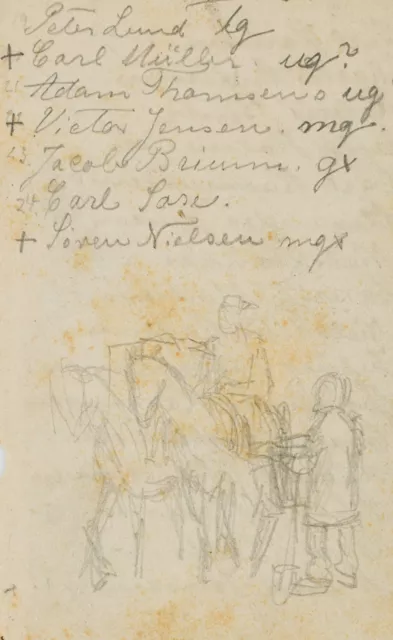 Peter Lund tg
+ Carl Müller. ug?
Adam Thomsen ug
+ Victor Jensen. mg.
23. Jacob Bruun. gx
24 Carl
+ Sören Nielsen mgx